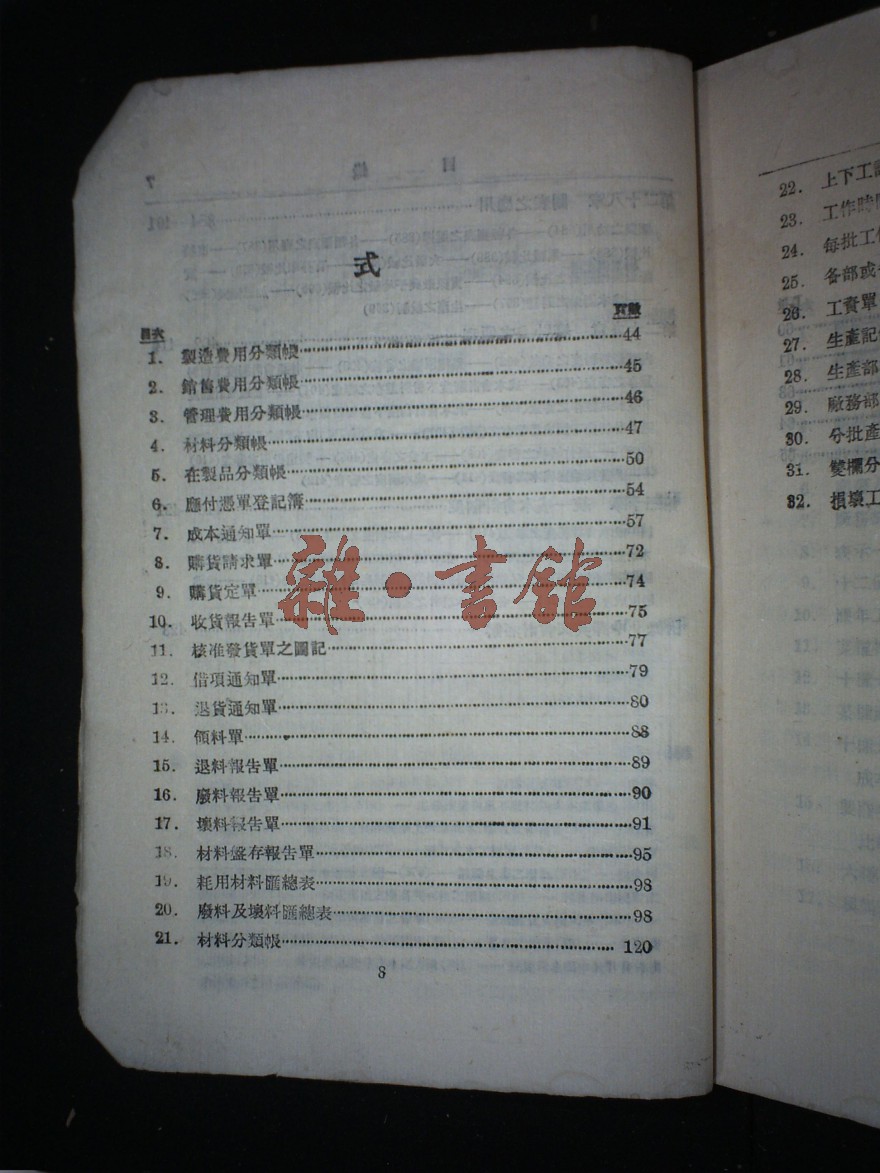 式
目次 頁數
1. 製造費用分類帳 44
2. 銷售費用分類帳 45
3. 管理費用分類帳 46
4. 材料分類帳 47
5. 在製品分類帳 50
6. 應付憑單登記簿 54
7. 成本通知單 57
8. 購貨請求單 72
9. 購貨定單 74
10. 收貨報告單 75
11. 核准發貨單之圖記 77
12. 借項通知單 79
13. 退貨通知單 80
14. 領料單 88
15. 退料報告單 89
16. 廢料報告單 90
17. 壞料報告單 91
18. 材料盤存報告單 95
19. 耗用材料匯總表 98
20. 廢料及壞料匯總表 98
21. 材料分類帳 120
8
雜·書館
22. 上下工
23. 工作時間
24. 每批工作
25. 各部或
26. 工資單
27. 生產記
28. 生產部
29. 廠務部
30. 分批產
31. 雙欄分
32. 損壞工